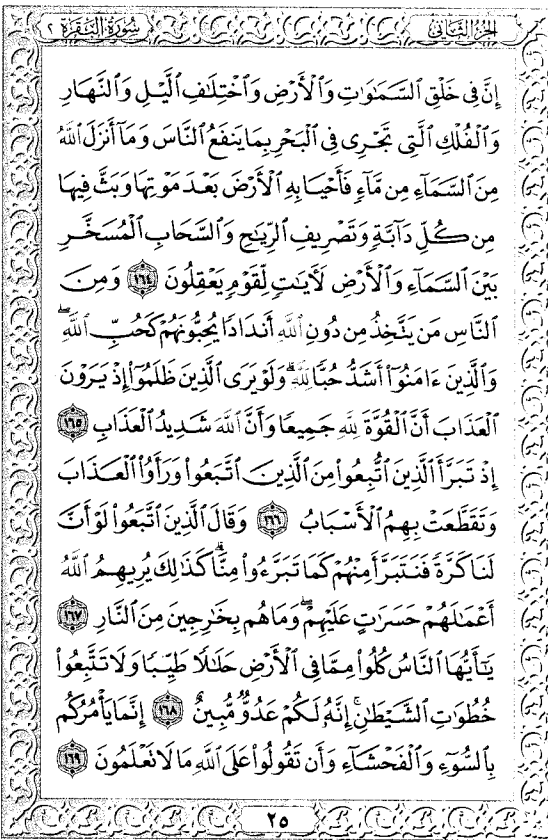 الجزء الثاني سورة البقرة ٢
إِنَّ فِى خَلْقِ ٱلسَّمَٰوَٰتِ وَٱلْأَرْضِ وَٱخْتِلَٰفِ ٱلَّيْلِ وَٱلنَّهَارِ
وَٱلْفُلْكِ ٱلَّتِى تَجْرِى فِى ٱلْبَحْرِ بِمَا يَنفَعُ ٱلنَّاسَ وَمَآ أَنزَلَ ٱللَّهُ
مِنَ ٱلسَّمَآءِ مِن مَّآءٍ فَأَحْيَا بِهِ ٱلْأَرْضَ بَعْدَ مَوْتِهَا وَبَثَّ فِيهَا
مِن كُلِّ دَآبَّةٍ وَتَصْرِيفِ ٱلرِّيَٰحِ وَٱلسَّحَابِ ٱلْمُسَخَّرِ
بَيْنَ ٱلسَّمَآءِ وَٱلْأَرْضِ لَءَايَٰتٍ لِّقَوْمٍ يَعْقِلُونَ ١٦٤ وَمِنَ
ٱلنَّاسِ مَن يَتَّخِذُ مِن دُونِ ٱللَّهِ أَندَادًا يُحِبُّونَهُمْ كَحُبِّ ٱللَّهِۖ
وَٱلَّذِينَ ءَامَنُوٓا۟ أَشَدُّ حُبًّا لِّلَّهِۗ وَلَوْ يَرَى ٱلَّذِينَ ظَلَمُوٓا۟ إِذْ يَرَوْنَ
ٱلْعَذَابَ أَنَّ ٱلْقُوَّةَ لِلَّهِ جَمِيعًا وَأَنَّ ٱللَّهَ شَدِيدُ ٱلْعَذَابِ ١٦٥
إِذْ تَبَرَّأَ ٱلَّذِينَ ٱتُّبِعُوا۟ مِنَ ٱلَّذِينَ ٱتَّبَعُوا۟ وَرَأَوُا۟ ٱلْعَذَابَ
وَتَقَطَّعَتْ بِهِمُ ٱلْأَسْبَابُ ١٦٦ وَقَالَ ٱلَّذِينَ ٱتَّبَعُوا۟ لَوْ أَنَّ
لَنَا كَرَّةً فَنَتَبَرَّأَ مِنْهُمْ كَمَا تَبَرَّءُوا۟ مِنَّاۗ كَذَٰلِكَ يُرِيهِمُ ٱللَّهُ
أَعْمَٰلَهُمْ حَسَرَٰتٍ عَلَيْهِمْۖ وَمَا هُم بِخَٰرِجِينَ مِنَ ٱلنَّارِ ١٦٧
يَٰٓأَيُّهَا ٱلنَّاسُ كُلُوا۟ مِمَّا فِى ٱلْأَرْضِ حَلَٰلًا طَيِّبًا وَلَا تَتَّبِعُوا۟
خُطُوَٰتِ ٱلشَّيْطَٰنِۚ إِنَّهُۥ لَكُمْ عَدُوٌّ مُّبِينٌ ١٦٨ إِنَّمَا يَأْمُرُكُم
بِٱلسُّوٓءِ وَٱلْفَحْشَآءِ وَأَن تَقُولُوا۟ عَلَى ٱللَّهِ مَا لَا تَعْلَمُونَ ١٦٩
٢٥